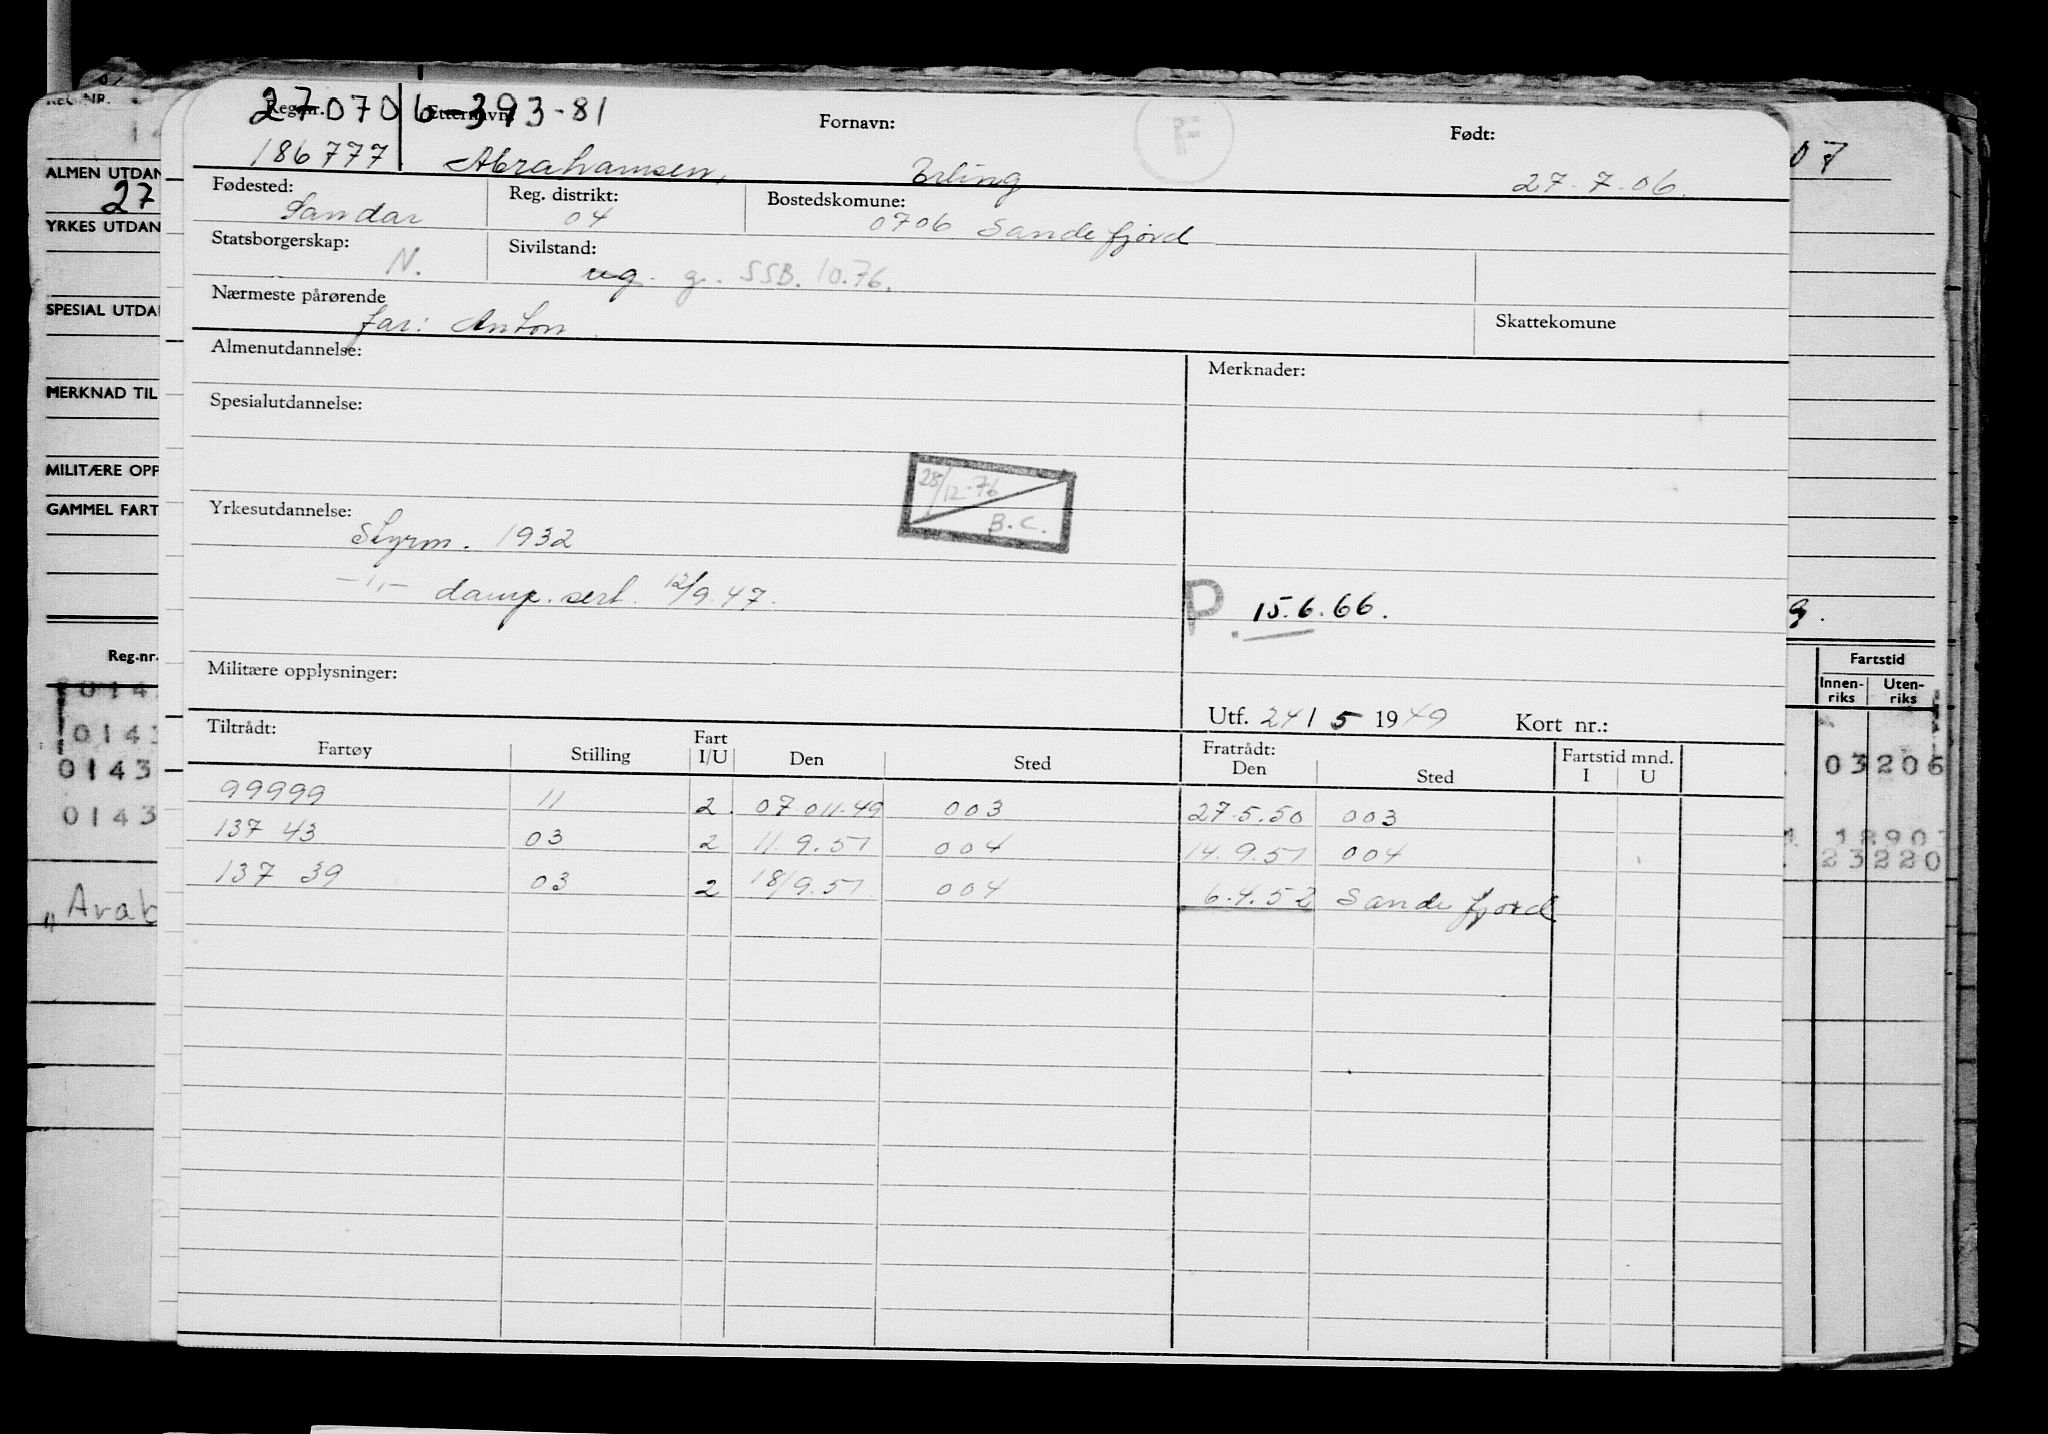 270706-393-81
Reg.nr. Etternavn: Fornavn: Født:
186777 Abrahamsen, Erling 27-7-06.
Fødested: Reg. distrikt: Bostedskomune:
Sandar 04 0706 Sandefjord
Statsborgerskap: Sivilstand:
N. ug. g. SSB. 10.76.
Nærmeste pårørende Skattekomune
far: Anton
Almenutdannelse: Merknader:
Spesialutdannelse:
28/12-76
B.C.
Yrkesutdannelse:
Styrm. 1932
—"— damp. sert. 12/9.47.
P. 15.6.66.
Militære opplysninger:
Utf. 24/5 1949 Kort nr.:
Tiltrådt: Fratrådt: Fartstid mnd.
Fartøy Stilling Fart I/U Den Sted Den Sted I U
99999 11 2 07 011.49 003 27.5.50 003
137 43 03 2 11.9.51 004 14.9.51 004
137 39 03 2 18/9.51 004 6.4.52 Sandefjord
REG.NR.
ALMEN UTDAN
27
YRKES UTDAN
SPESIAL UTDA
MERKNAD TIL
MILITÆRE OPP
GAMMEL FART
Reg.nr.
0143
0143
0143
0143
"Arab
07
9.
Fartstid
Innenriks Utenriks
03206
18907
23220